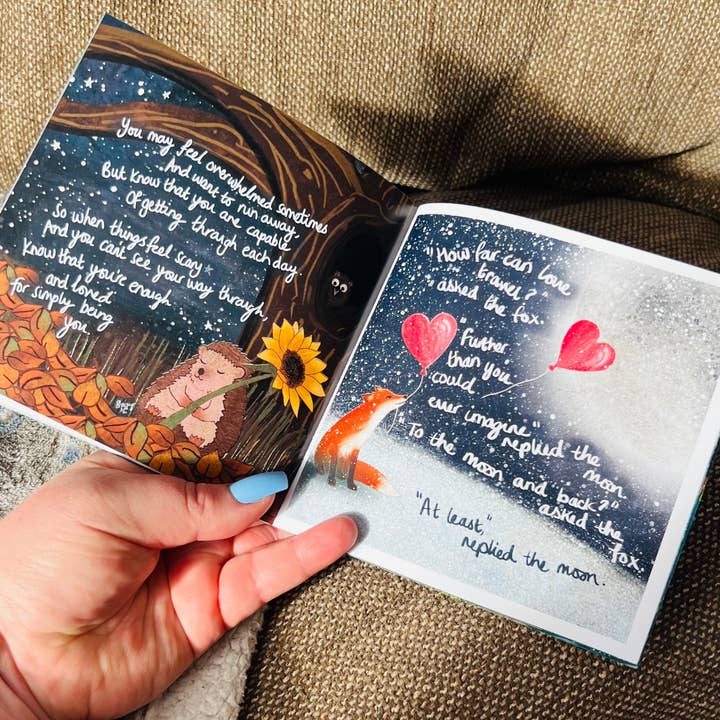 You may feel overwhelmed sometimes
And want to run away,
But know that you are capable
Of getting through each day.
So when things feel scary
And you can't see your way through,
Know that, you're enough
and loved
for simply being
you.
"How far can love
travel?"
asked the fox.
"Further
than you
could
ever imagine"
replied the
moon
"To the moon and back?"
asked the
fox.
"At least,"
replied the moon.